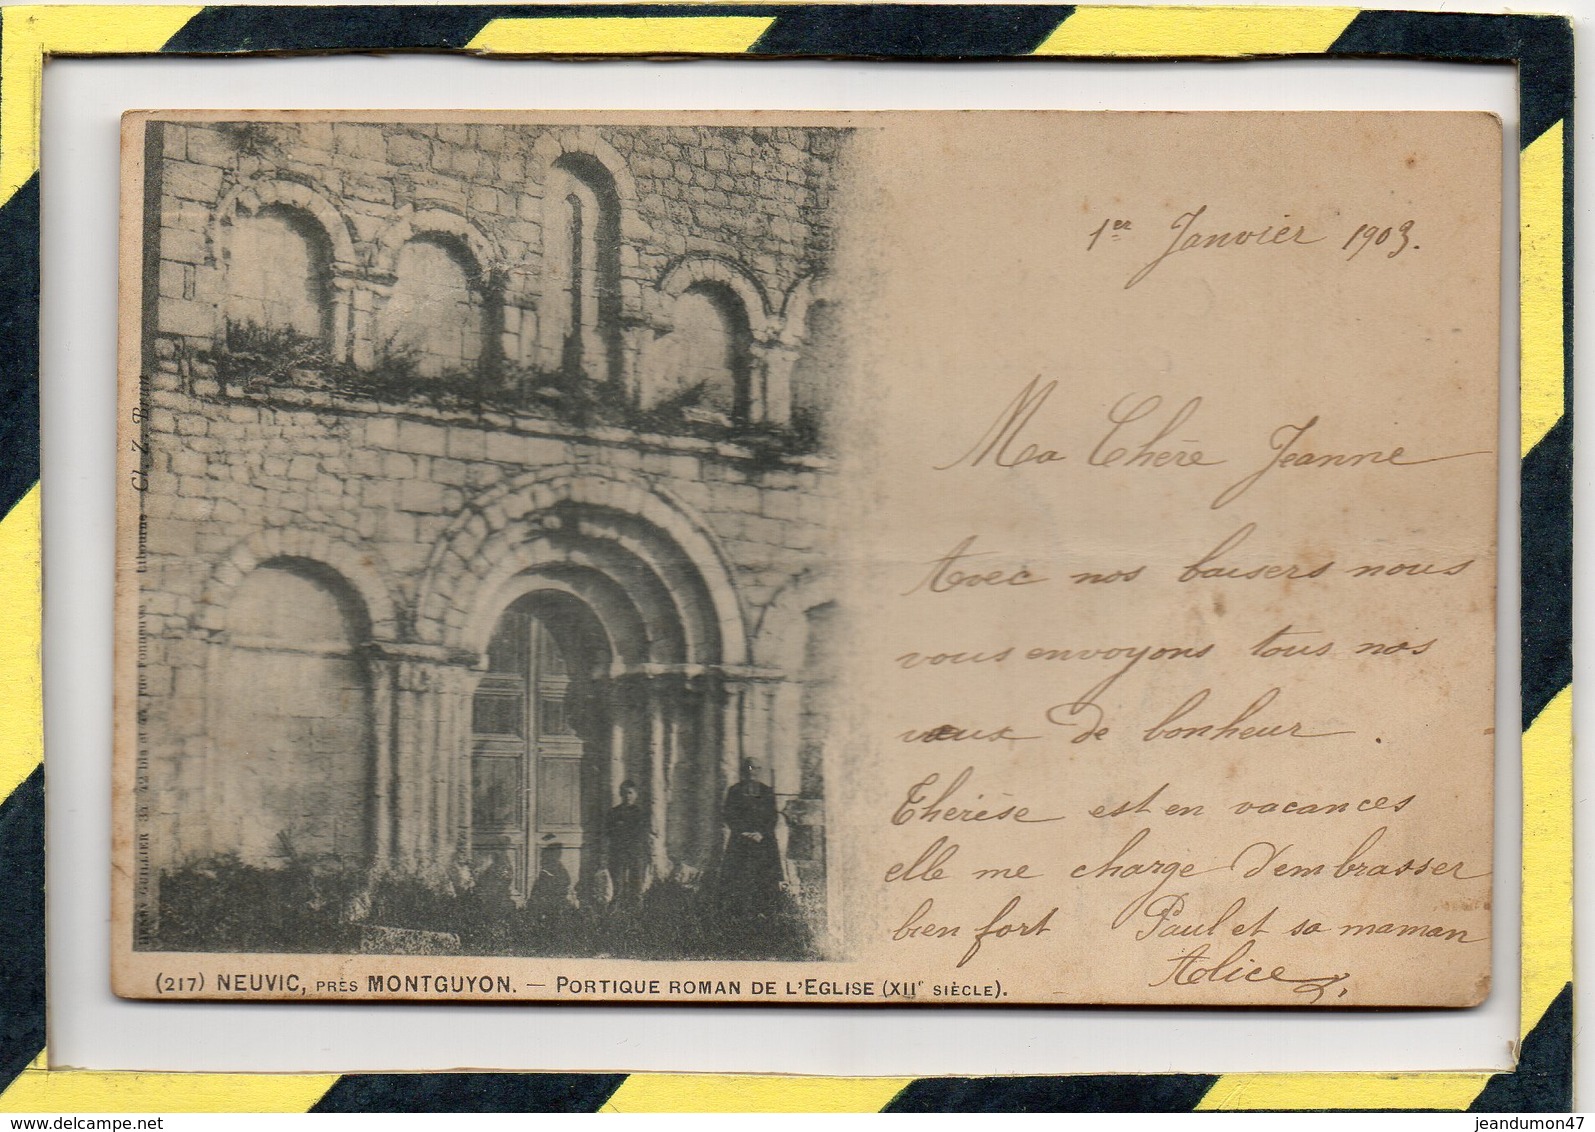 1er Janvier 1903.
Ma Chère Jeanne
Avec nos baisers nous
vous envoyons tous nos
vœux de bonheur.
Thérèse est en vacances
elle me charge d'embrasser
bien fort Paul et sa maman
Alice
(217) NEUVIC, PRÈS MONTGUYON. — PORTIQUE ROMAN DE L'EGLISE (XIIe SIÈCLE).
HENRY GUILLIER Libourne Cl. Z. Brun
delcampe.net
jeandumon47